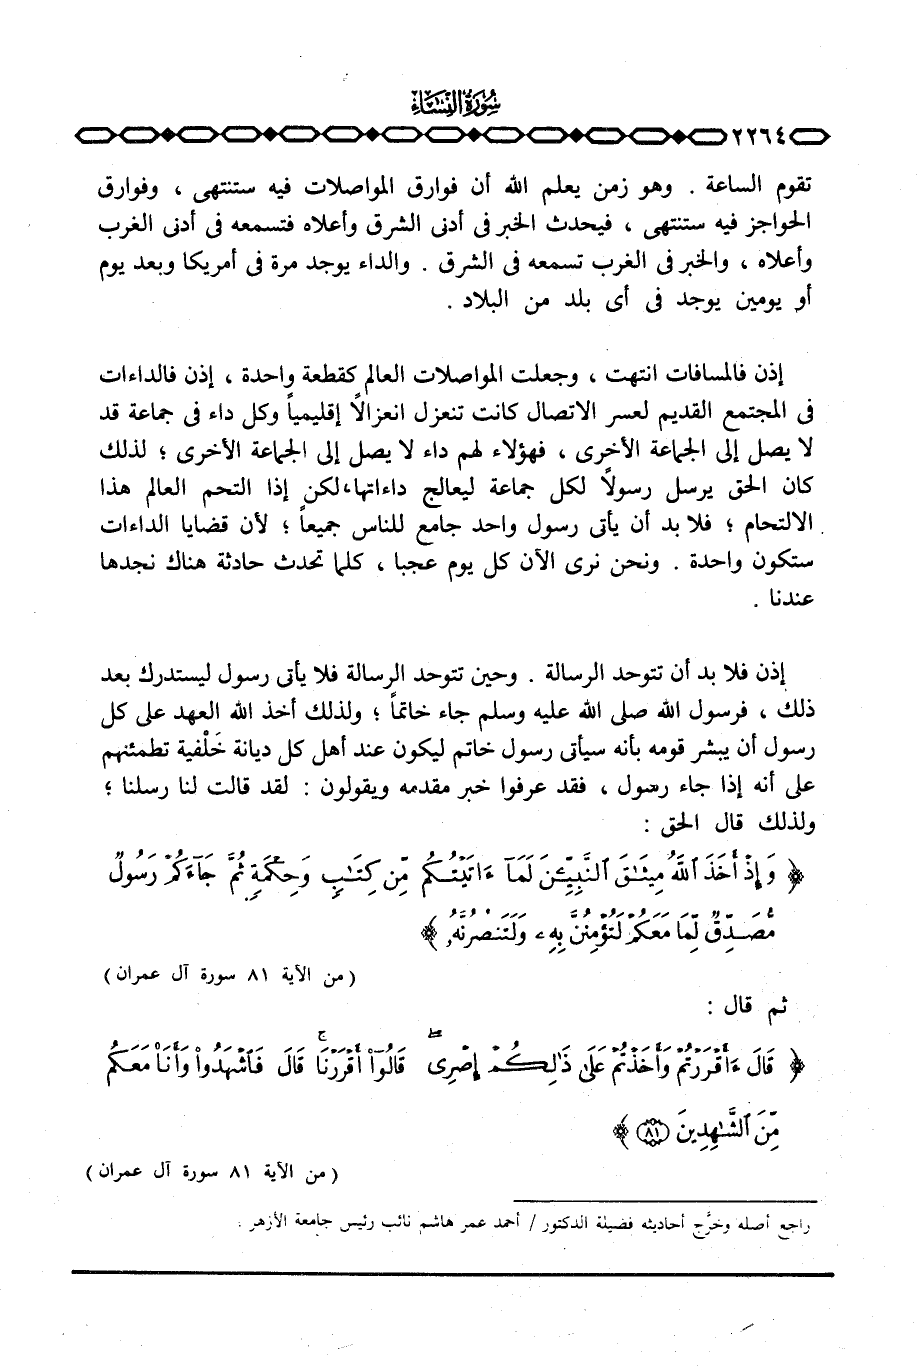 سورة النساء
٢٢٦٤
تقوم الساعة . وهو زمن يعلم الله أن فوارق المواصلات فيه ستنتهى ، وفوارق
الحواجز فيه ستنتهى ، فيحدث الخبر فى أدنى الشرق وأعلاه فتسمعه فى أدنى الغرب
وأعلاه ، والخبر فى الغرب تسمعه فى الشرق . والداء يوجد مرة فى أمريكا وبعد يوم
أو يومين يوجد فى أى بلد من البلاد .
إذن فالمسافات انتهت ، وجعلت المواصلات العالم كقطعة واحدة ، إذن فالداءات
فى المجتمع القديم لعسر الاتصال كانت تنعزل انعزالًا إقليمياً وكل داء فى جماعة قد
لا يصل إلى الجماعة الأخرى ، فهؤلاء لهم داء لا يصل إلى الجماعة الأخرى ؛ لذلك
كان الحق يرسل رسولًا لكل جماعة ليعالج داءاتها، لكن إذا التحم العالم هذا
الالتحام ؛ فلا بد أن يأتى رسول واحد جامع للناس جميعاً ؛ لأن قضايا الداءات
ستكون واحدة . ونحن نرى الآن كل يوم عجبا ، كلما تحدث حادثة هناك نجدها
عندنا .
إذن فلا بد أن تتوحد الرسالة . وحين تتوحد الرسالة فلا يأتى رسول ليستدرك بعد
ذلك ، فرسول الله صلى الله عليه وسلم جاء خاتماً ؛ ولذلك أخذ الله العهد على كل
رسول أن يبشر قومه بأنه سيأتى رسول خاتم ليكون عند أهل كل ديانة خَلْفية تطمئنهم
على أنه إذا جاء رسول ، فقد عرفوا خبر مقدمه ويقولون : لقد قالت لنا رسلنا ؛
ولذلك قال الحق :
﴿ وَإِذْ أَخَذَ ٱللَّهُ مِيثَٰقَ ٱلنَّبِيِّـۧنَ لَمَآ ءَاتَيْتُكُم مِّن كِتَٰبٍ وَحِكْمَةٍ ثُمَّ جَآءَكُمْ رَسُولٌ
مُّصَدِّقٌ لِّمَا مَعَكُمْ لَتُؤْمِنُنَّ بِهِۦ وَلَتَنصُرُنَّهُۥ ﴾
( من الآية ٨١ سورة آل عمران )
ثم قال :
﴿ قَالَ ءَأَقْرَرْتُمْ وَأَخَذْتُمْ عَلَىٰ ذَٰلِكُمْ إِصْرِى ۖ قَالُوٓا۟ أَقْرَرْنَا ۚ قَالَ فَٱشْهَدُوا۟ وَأَنَا۠ مَعَكُم
مِّنَ ٱلشَّٰهِدِينَ ٨١ ﴾
( من الآية ٨١ سورة آل عمران )
راجع أصله وخرَّج أحاديثه فضيلة الدكتور / أحمد عمر هاشم نائب رئيس جامعة الأزهر .